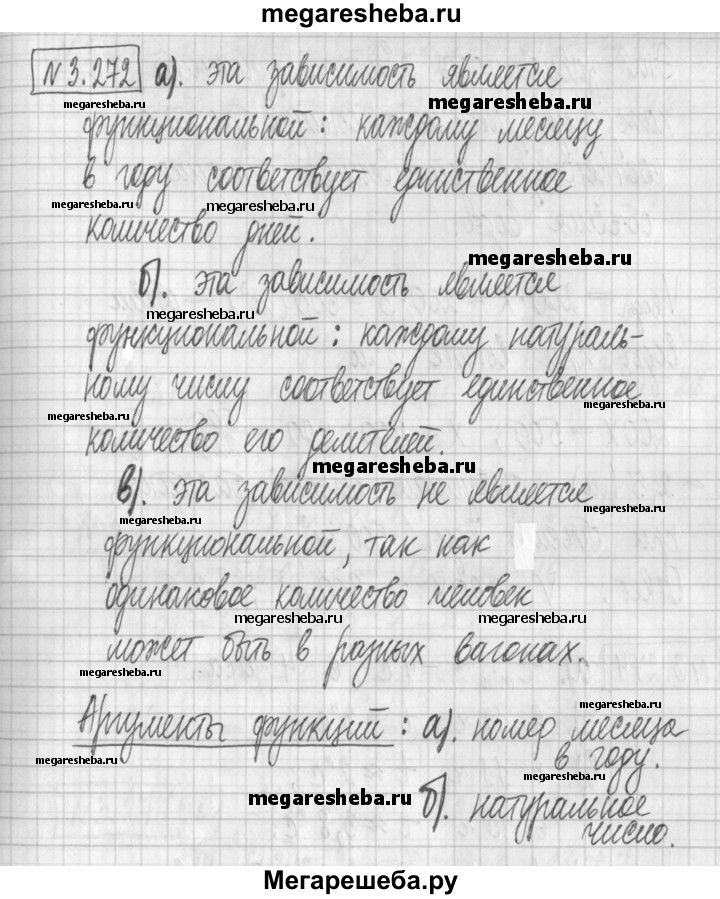 megaresheba.ru
N 3.272 а). эта зависимость является
megaresheba.ru megaresheba.ru
функциональной: каждому месяцу
в году соответствует единственное
megaresheba.ru megaresheba.ru
количество дней.
megaresheba.ru
б). эта зависимость является
megaresheba.ru
функциональной: каждому натураль-
ному числу соответствует единственное
megaresheba.ru megaresheba.ru
количество его делителей.
megaresheba.ru
в). эта зависимость не является
megaresheba.ru
функциональной, так как
одинаковое количество человек
megaresheba.ru megaresheba.ru
может быть в разных вагонах.
megaresheba.ru
megaresheba.ru
Аргументы функций: а). номер месяца
в году.
megaresheba.ru megaresheba.ru
megaresheba.ru
б). натуральное
число.
megaresheba.ru
Мегарешеба.ру